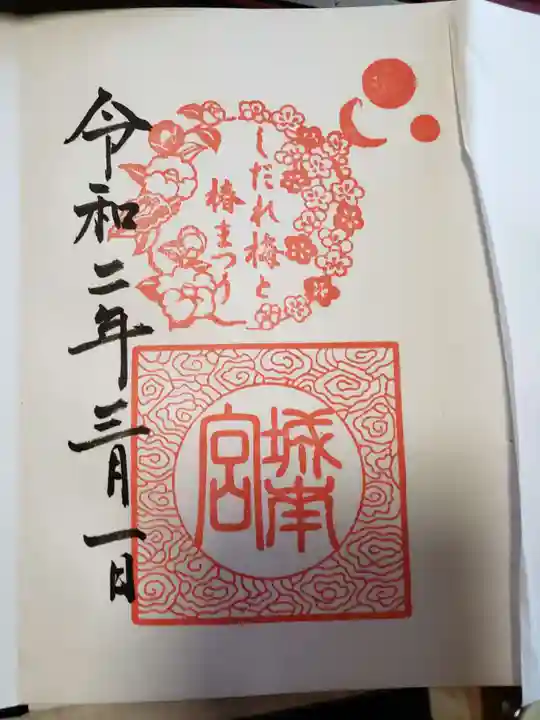 しだれ梅と
椿まつり
城南
宮
令和二年三月一日